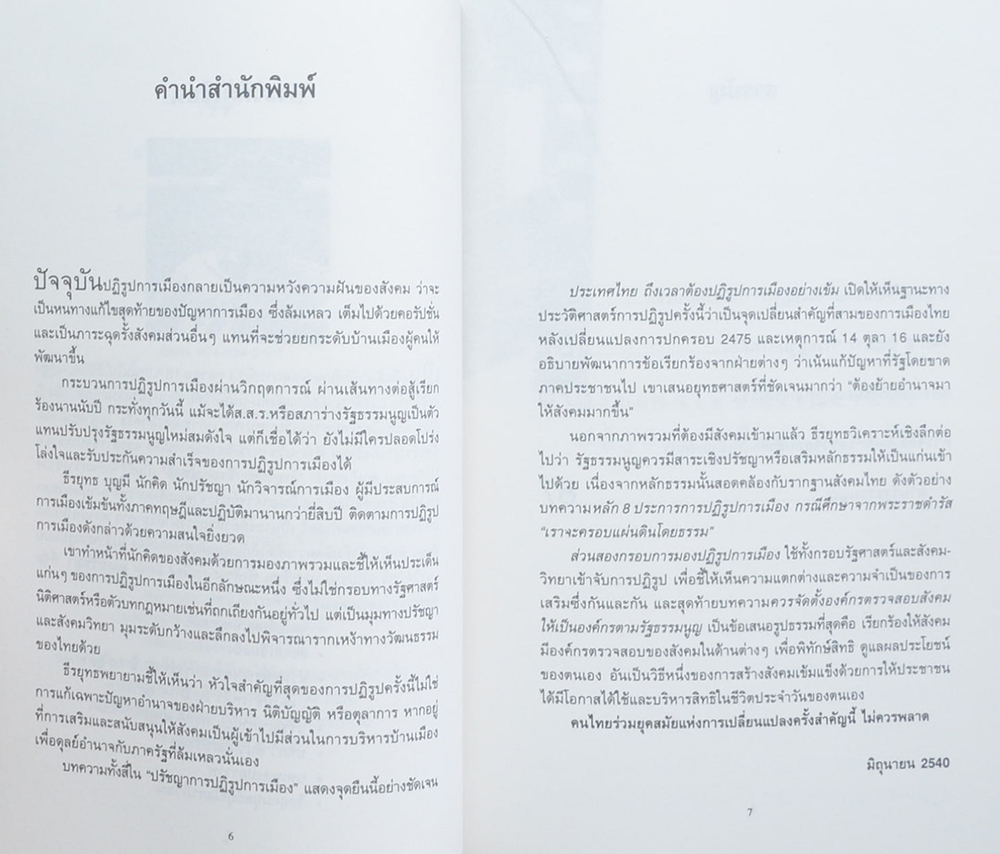 คำนำสำนักพิมพ์
ปัจจุบันปฏิรูปการเมืองกลายเป็นความหวังความฝันของสังคม ว่าจะ
เป็นหนทางแก้ไขสุดท้ายของปัญหาการเมือง ซึ่งล้มเหลว เต็มไปด้วยคอรัปชั่น
และเป็นภาระฉุดรั้งสังคมส่วนอื่นๆ แทนที่จะช่วยยกระดับบ้านเมืองผู้คนให้
พัฒนาขึ้น
กระบวนการปฏิรูปการเมืองผ่านวิกฤตการณ์ ผ่านเส้นทางต่อสู้เรียก
ร้องนานนับปี กระทั่งทุกวันนี้ แม้จะได้ส.ส.ร.หรือสภาร่างรัฐธรรมนูญเป็นตัว
แทนปรับปรุงรัฐธรรมนูญใหม่สมดังใจ แต่ก็เชื่อได้ว่า ยังไม่มีใครปลอดโปร่ง
โล่งใจและรับประกันความสำเร็จของการปฏิรูปการเมืองได้
ธีรยุทธ บุญมี นักคิด นักปรัชญา นักวิจารณ์การเมือง ผู้มีประสบการณ์
การเมืองเข้มข้นทั้งภาคทฤษฎีและปฏิบัติมานานกว่ายี่สิบปี ติดตามการปฏิรูป
การเมืองดังกล่าวด้วยความสนใจยิ่งยวด
เขาทำหน้าที่นักคิดของสังคมด้วยการมองภาพรวมและชี้ให้เห็นประเด็น
แก่นๆ ของการปฏิรูปการเมืองในอีกลักษณะหนึ่ง ซึ่งไม่ใช่กรอบทางรัฐศาสตร์
นิติศาสตร์หรือตัวบทกฎหมายเช่นที่ถกเถียงกันอยู่ทั่วไป แต่เป็นมุมทางปรัชญา
และสังคมวิทยา มุมระดับกว้างและลึกลงไปพิจารณารากเหง้าทางวัฒนธรรม
ของไทยด้วย
ธีรยุทธพยายามชี้ให้เห็นว่า หัวใจสำคัญที่สุดของการปฏิรูปครั้งนี้ไม่ใช่
การแก้เฉพาะปัญหาอำนาจของฝ่ายบริหาร นิติบัญญัติ หรือตุลาการ หากอยู่
ที่การเสริมและสนับสนุนให้สังคมเป็นผู้เข้าไปมีส่วนในการบริหารบ้านเมือง
เพื่อดุลย์อำนาจกับภาครัฐที่ล้มเหลวนั่นเอง
บทความทั้งสี่ใน “ปรัชญาการปฏิรูปการเมือง” แสดงจุดยืนนี้อย่างชัดเจน
6
ประเทศไทย ถึงเวลาต้องปฏิรูปการเมืองอย่างเข้ม เปิดให้เห็นฐานะทาง
ประวัติศาสตร์การปฏิรูปครั้งนี้ว่าเป็นจุดเปลี่ยนสำคัญที่สามของการเมืองไทย
หลังเปลี่ยนแปลงการปกครอบ 2475 และเหตุการณ์ 14 ตุลา 16 และยัง
อธิบายพัฒนาการข้อเรียกร้องจากฝ่ายต่างๆ ว่าเน้นแก้ปัญหาที่รัฐโดยขาด
ภาคประชาชนไป เขาเสนอยุทธศาสตร์ที่ชัดเจนมากว่า “ต้องย้ายอำนาจมา
ให้สังคมมากขึ้น”
นอกจากภาพรวมที่ต้องมีสังคมเข้ามาแล้ว ธีรยุทธวิเคราะห์เชิงลึกต่อ
ไปว่า รัฐธรรมนูญควรมีสาระเชิงปรัชญาหรือเสริมหลักธรรมให้เป็นแก่นเข้า
ไปด้วย เนื่องจากหลักธรรมนั้นสอดคล้องกับรากฐานสังคมไทย ดังตัวอย่าง
บทความหลัก 8 ประการการปฏิรูปการเมือง กรณีศึกษาจากพระราชดำรัส
“เราจะครอบแผ่นดินโดยธรรม”
ส่วนสองกรอบการมองปฏิรูปการเมือง ใช้ทั้งกรอบรัฐศาสตร์และสังคม-
วิทยาเข้าจับการปฏิรูป เพื่อชี้ให้เห็นความแตกต่างและความจำเป็นของการ
เสริมซึ่งกันและกัน และสุดท้ายบทความควรจัดตั้งองค์กรตรวจสอบสังคม
ให้เป็นองค์กรตามรัฐธรรมนูญ เป็นข้อเสนอรูปธรรมที่สุดคือ เรียกร้องให้สังคม
มีองค์กรตรวจสอบของสังคมในด้านต่างๆ เพื่อพิทักษ์สิทธิ ดูแลผลประโยชน์
ของตนเอง อันเป็นวิธีหนึ่งของการสร้างสังคมเข้มแข็งด้วยการให้ประชาชน
ได้มีโอกาสได้ใช้และบริหารสิทธิในชีวิตประจำวันของตนเอง
คนไทยร่วมยุคสมัยแห่งการเปลี่ยนแปลงครั้งสำคัญนี้ ไม่ควรพลาด
มิถุนายน 2540
7